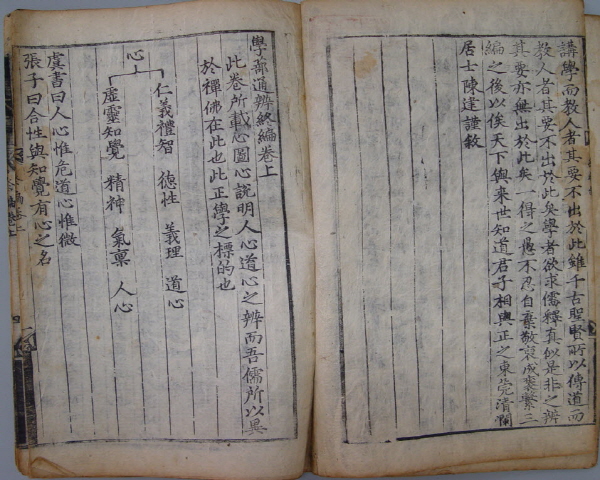 講學而教人者其要不出於此雖千古聖賢所以傳道而
教人者其要不出於此矣學者欲求儒釋真似是非之辨
其要亦無出於此矣一得之愚不忍自棄敬裒成
編之後以俟天下與来世知道君子相與正之東莞清瀾
居士陳建謹敘
學蔀通辨終編卷上
此卷所載心圖心說明人心道心之辨而吾儒所以異
於禪佛在此也此正學之標的也
心
仁義禮智 德性 義理 道心
虛靈知覺 精神 氣稟 人心
虞書曰人心惟危道心惟微
張子曰合性與知覺有心之名